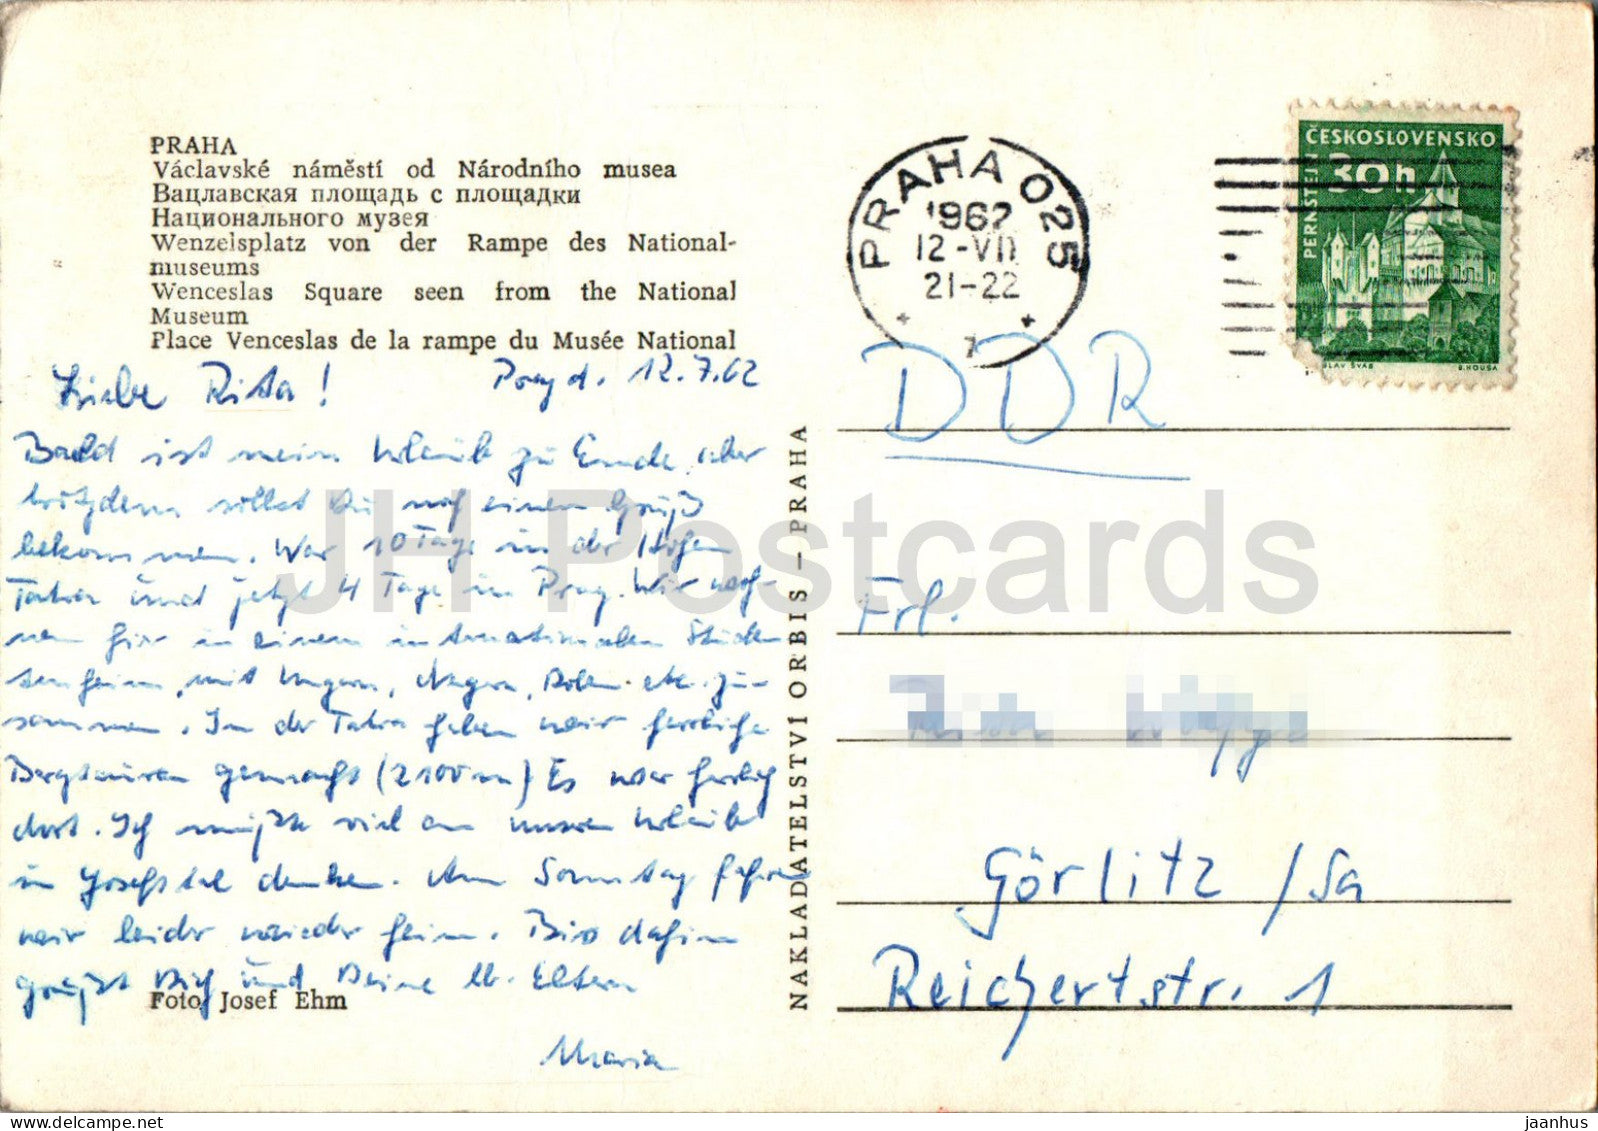 PRAHA
Václavské náměstí od Národního musea
Вацлавская площадь с площадки
Национального музея
Wenzelsplatz von der Rampe des National-
museums
Wenceslas Square seen from the National
Museum
Place Venceslas de la rampe du Musée National
Liebe Rita! Prag d. 12.7.62
Bald ist mein Urlaub zu Ende, aber
trotzdem sollst Du noch einen Gruß
bekommen. War 10 Tage in der Hohen
Tatra und jetzt 4 Tage in Prag. Wir woh-
nen hier in einem internationalen Studen
tenheim, mit Ungarn, Negern, Polen etc. zu-
sammen. In der Tatra haben wir herrliche
Bergtouren gemacht (2100 m) Es war herrlich
dort. Ich mußte viel an unseren Urlaub
in Josefstal denken. Am Sonntag fahren
wir leider wieder heim. Bis dahin
grüßt Dich und Deine lb. Eltern
Maria
Foto Josef Ehm
NAKLADATELSTVÍ ORBIS — PRAHA
PRAHA 025
1962
12-VII
21-22
7
ČESKOSLOVENSKO
30h
PERNŠTEJN
B. HOUSA
DDR
Frl.
Görlitz /Sa
Reichertstr. 1
JH Postcards
jaanhus @ Delcampe.net